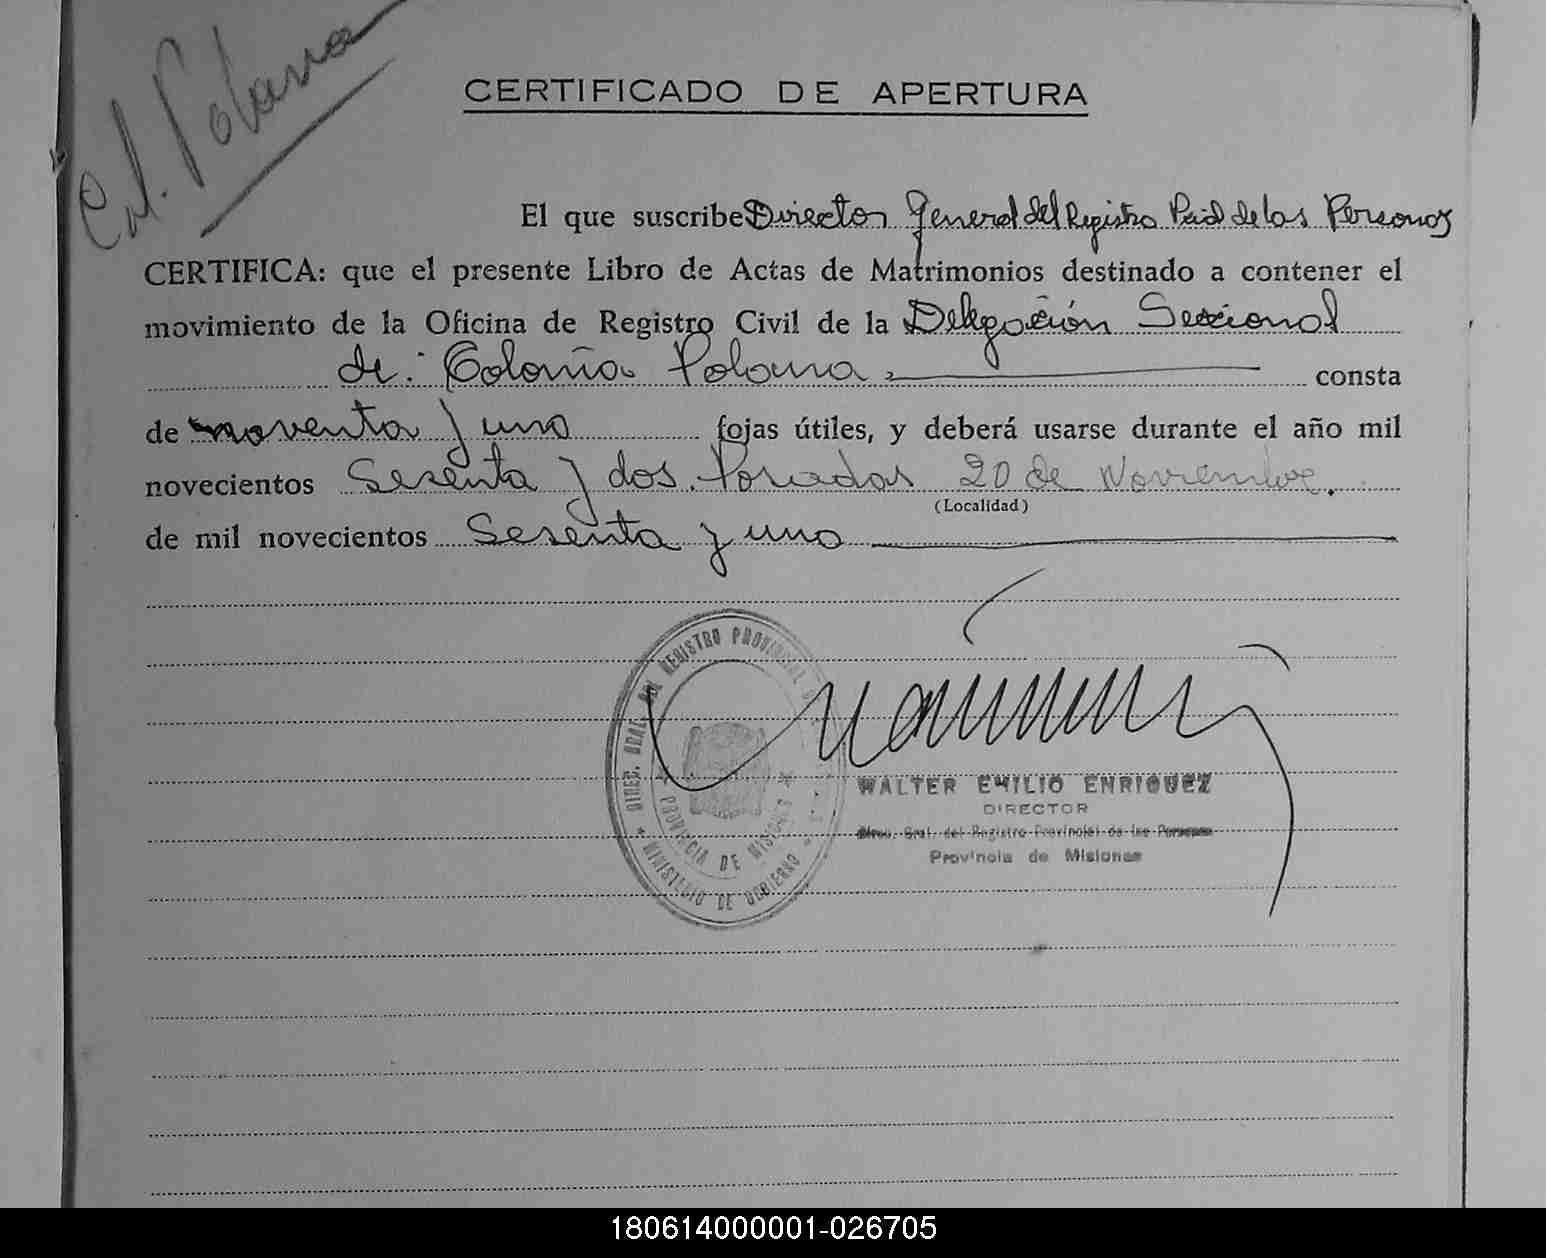 Col. Polana
CERTIFICADO DE APERTURA
El que suscribe Director General del Registro Pcial de las Personas
CERTIFICA: que el presente Libro de Actas de Matrimonios destinado a contener el
movimiento de la Oficina de Registro Civil de la Delegación Seccional
de: Colonia Polana consta
de noventa y uno fojas útiles, y deberá usarse durante el año mil
novecientos Sesenta y dos. Posadas 20 de Noviembre.
(Localidad)
de mil novecientos Sesenta y uno
DIREC. GRAL. DEL REGISTRO PROVINCIAL
PROVINCIA DE MISIONES
MINISTERIO DE GOBIERNO
WALTER EMILIO ENRIQUEZ
DIRECTOR
Direc. Gral. del Registro Provincial de las Personas
Provincia de Misiones
180614000001-026705